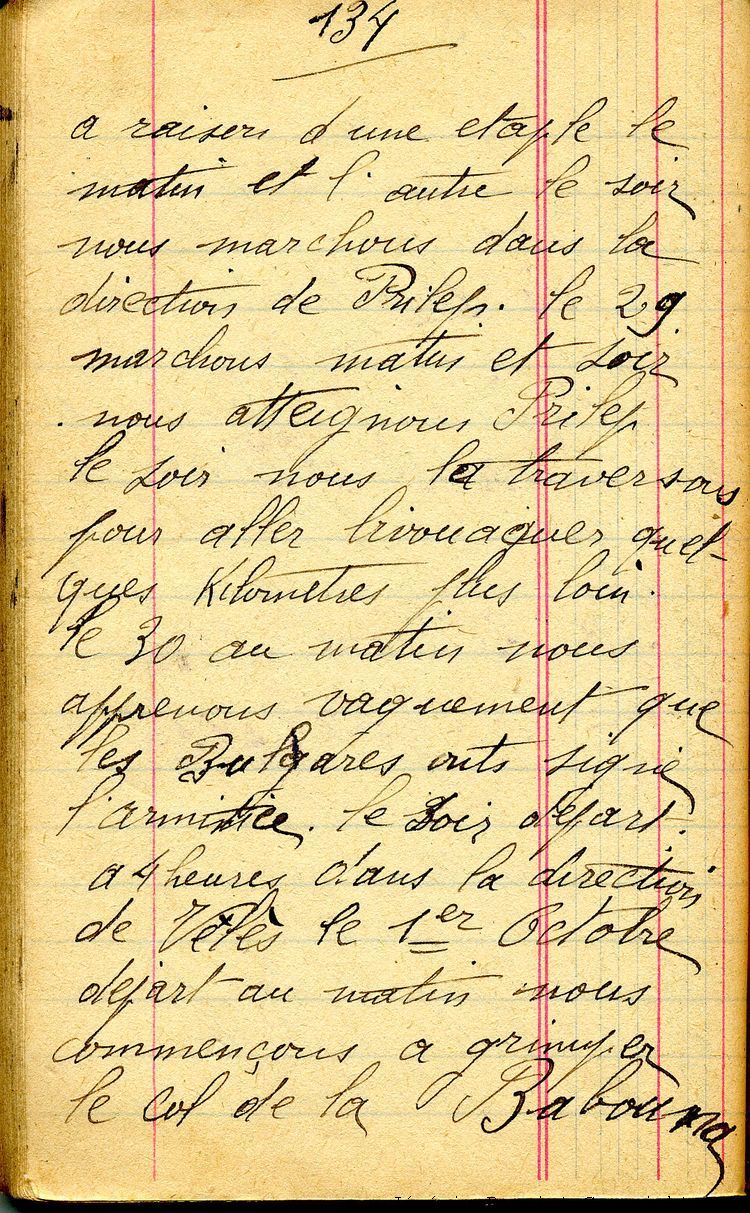 134
a raison d'une etaple le
matin et l'autre le soir
nous marchons dans la
direction de Prilep. le 29
marchons matin et soir
. nous atteignons Prilep
le soir nous la traversons
pour aller bivouaguer quel-
ques Kilometres plus loin.
le 30 au matin nous
apprenons vaguement que
les Bulgares onts signé
l'armitice. le soir depart.
a 4 heures dans la direction
de Vélès le 1er Octobre
depart au matin nous
commençons a grimper
le col de la Babouna